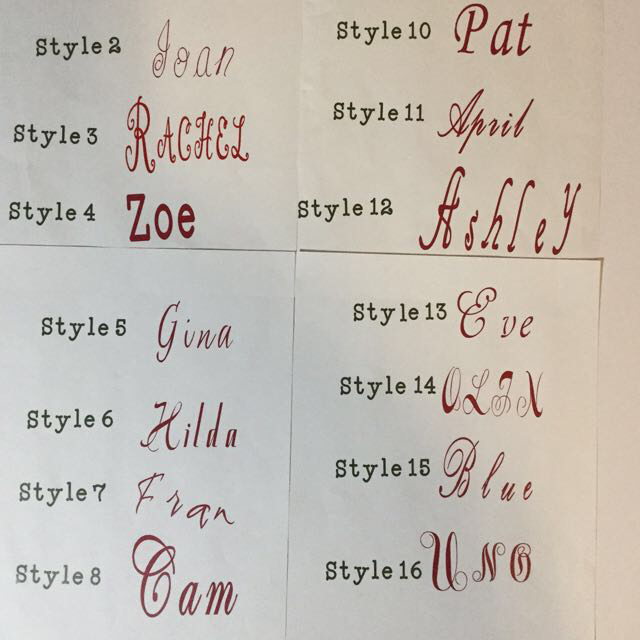 Style 2 Joan
Style 3 RACHEL
Style 4 Zoe
Style 5 Gina
Style 6 Hilda
Style 7 Fran
Style 8 Cam
Style 10 Pat
Style 11 April
Style 12 Ashley
Style 13 Eve
Style 14 OLIN
Style 15 Blue
Style 16 UNO